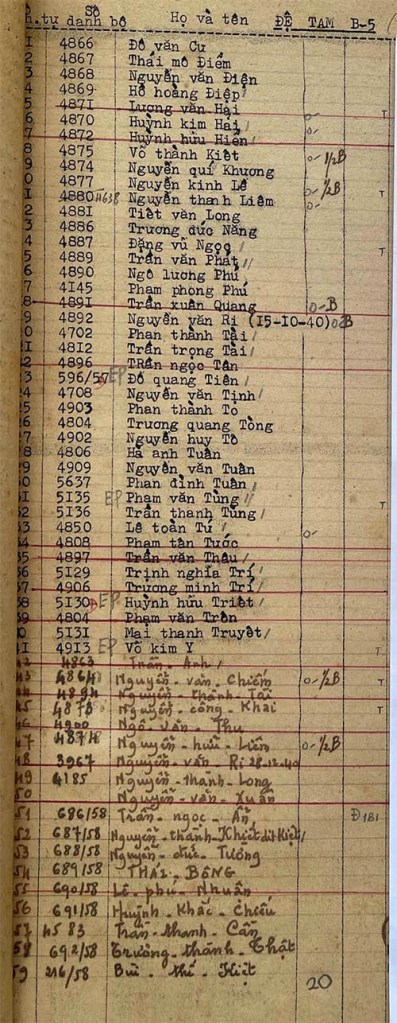 Số Họ và tên ĐỆ TAM B-5
h.tự danh bộ
1 4866 Đỗ văn Cư
2 4867 Thái mô Điềm
3 4868 Nguyễn văn Điện
4 4869 Hồ hoàng Điệp
5 4871 Lương văn Hai
6 4870 Huỳnh kim Hai
7 4872 Huỳnh hữu Hiền
8 4875 Võ thành Kiết 1/2B
9 4874 Nguyễn quí Khương
0 4877 Nguyễn kinh Lễ 1/2B
1 4880 Nguyễn thanh Liêm
2 4881 Tiết văn Long
3 4886 Trương đức Năng
4 4887 Đặng vũ Ngọc
5 4889 Trần văn Phát
6 4890 Ngô lương Phú
7 4145 Phạm phong Phú
8 4891 Trần xuân Quang B
9 4892 Nguyễn văn Ri (15-10-40) B
0 4702 Phan thành Tài
1 4812 Trần trọng Tài
2 4896 TRần ngọc Tân
3 596/57 EP Đỗ quang Tiên
4 4708 Nguyễn văn Tịnh
5 4903 Phan thành Tô
6 4804 Trương quang Tòng
7 4902 Nguyễn huy Tô
8 4806 Hà anh Tuân
9 4909 Nguyễn văn Tuân
0 5637 Phan đình Tuân
1 5135 EP Phạm văn Tùng
2 5136 Trần thanh Tùng
3 4850 Lê toàn Tú
4 4808 Phạm tân Tước
5 4897 Trần văn Thâu
6 5129 Trịnh nghĩa Trí
7 4906 Trương minh Trí
8 5130 EP Huỳnh hữu Triết
9 4804 Phạm văn Trên
0 5131 Mai thanh Truyết
1 4913 EP Võ kim Y
42 4863 Trần - Anh
43 4864 Nguyễn - văn - Chiếm 1/2B
44 4894 Nguyễn - thành - Tài
45 4878 Nguyễn - công - Khai
46 4900 Ngô - văn - Thu
47 4874 Nguyễn - hữu - Liên 1/2B
48 3967 Nguyễn - văn - Ri 28-12-40
49 4185 Nguyễn - thành - Long
50 Nguyễn - văn - Xuân
51 686/58 Trần - ngọc - Ẩn Đ1B1
52 687/58 Nguyễn - thành - Khiết dit Kiệt
53 688/58 Nguyễn - đức - Tường
54 689/58 THÁI - BÔNG
55 690/58 Lê - phú - Nhuân
56 691/58 Huỳnh - Khắc - Chiếu
57 4583 Trần - thanh - Cần
58 692/58 Trường - thành - Thật
59 216/58 Bùi - thế - Kiệt
20